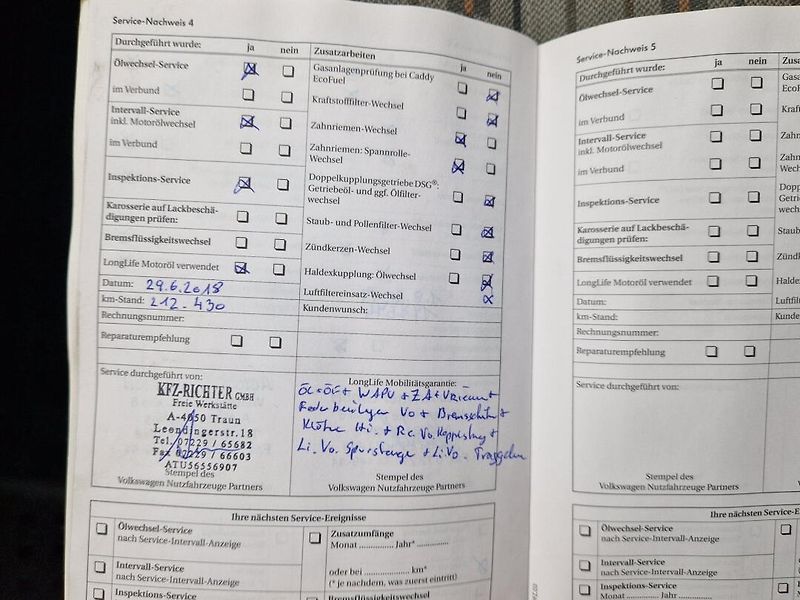 Service-Nachweis 4
Durchgeführt wurde: ja nein
Ölwechsel-Service
im Verbund
Intervall-Service
inkl. Motorölwechsel
im Verbund
Inspektions-Service
Karosserie auf Lackbeschä-
digungen prüfen:
Bremsflüssigkeitswechsel
LongLife Motoröl verwendet
Datum: 29.6.2018
km-Stand: 212.430
Rechnungsnummer:
Reparaturempfehlung
Zusatzarbeiten ja nein
Gasanlagenprüfung bei Caddy
EcoFuel
Kraftstofffilter-Wechsel
Zahnriemen-Wechsel
Zahnriemen: Spannrolle-
Wechsel
Doppelkupplungsgetriebe DSG®:
Getriebeöl- und ggf. Ölfilter-
wechsel
Staub- und Pollenfilter-Wechsel
Zündkerzen-Wechsel
Haldexkupplung: Ölwechsel
Luftfiltereinsatz-Wechsel
Kundenwunsch:
Service durchgeführt von:
KFZ-RICHTER GMBH
Freie Werkstätte
A-4050 Traun
Leondingerstr.18
Tel. 07229 / 65682
Fax 07229 / 66603
ATU56556907
Stempel des
Volkswagen Nutzfahrzeuge Partners
LongLife Mobilitätsgarantie:
+ WAPU +
Vo +
Hi. + Re. Vo.
Li. Vo. Spurstange + Li Vo.
Stempel des
Volkswagen Nutzfahrzeuge Partners
Ihre nächsten Service-Ereignisse
Ölwechsel-Service
nach Service-Intervall-Anzeige
Intervall-Service
nach Service-Intervall-Anzeige
Inspektions-Service
nach Service-Intervall-Anzeige
Zusatzumfänge
Monat .............. Jahr* ..............
oder bei .............. km*
(* je nachdem, was zuerst eintritt)
Bremsflüssigkeitswechsel
Service-Nachweis 5
Durchgeführt wurde: ja nein
Ölwechsel-Service
im Verbund
Intervall-Service
inkl. Motorölwechsel
im Verbund
Inspektions-Service
Karosserie auf Lackbeschä-
digungen prüfen:
Bremsflüssigkeitswechsel
LongLife Motoröl verwendet
Datum:
km-Stand:
Rechnungsnummer:
Reparaturempfehlung
Service durchgeführt von:
Stempel des
Volkswagen Nutzfahrzeuge Partners
Ölwechsel-Service
nach Service-Intervall-Anzeige
Intervall-Service
nach Service-Intervall-Anzeige
Inspektions-Service